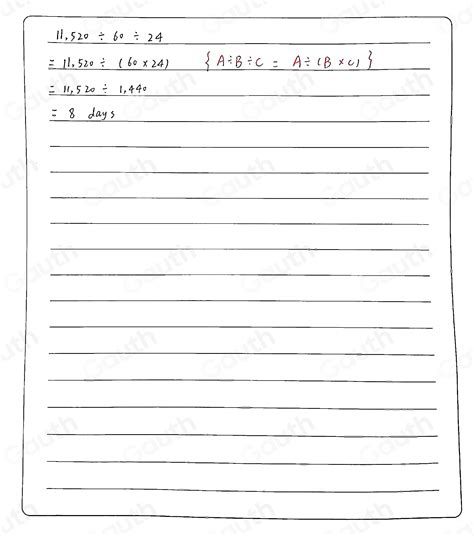 11,520 ÷ 60 ÷ 24
= 11,520 ÷ (60 × 24) { A÷B÷C = A÷(B × C) }
= 11,520 ÷ 1,440
= 8 days
Gauth